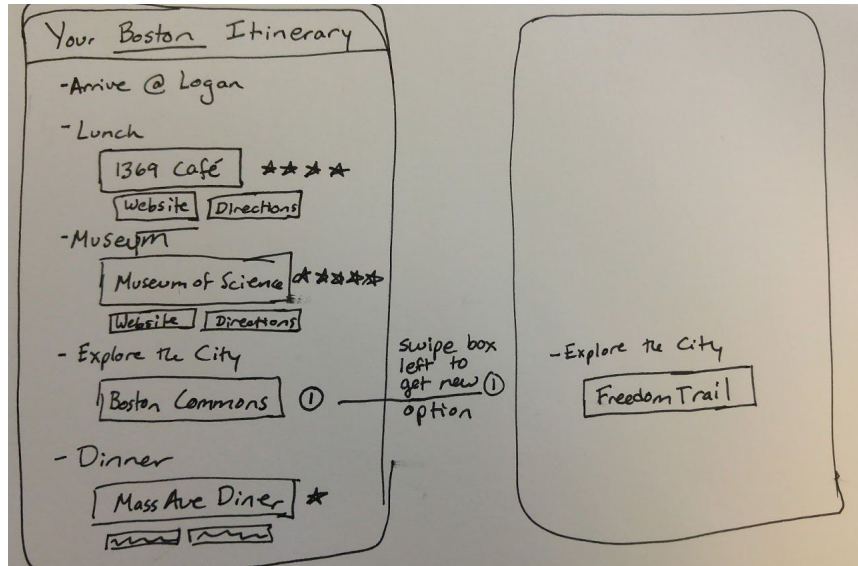 Your Boston Itinerary
- Arrive @ Logan
- Lunch
1369 Café
Website Directions
- Museum
Museum of Science
Website Directions
- Explore the City
Boston Commons ①
- Dinner
Mass Ave Diner
swipe box
left to
get new ①
option
- Explore the City
Freedom Trail